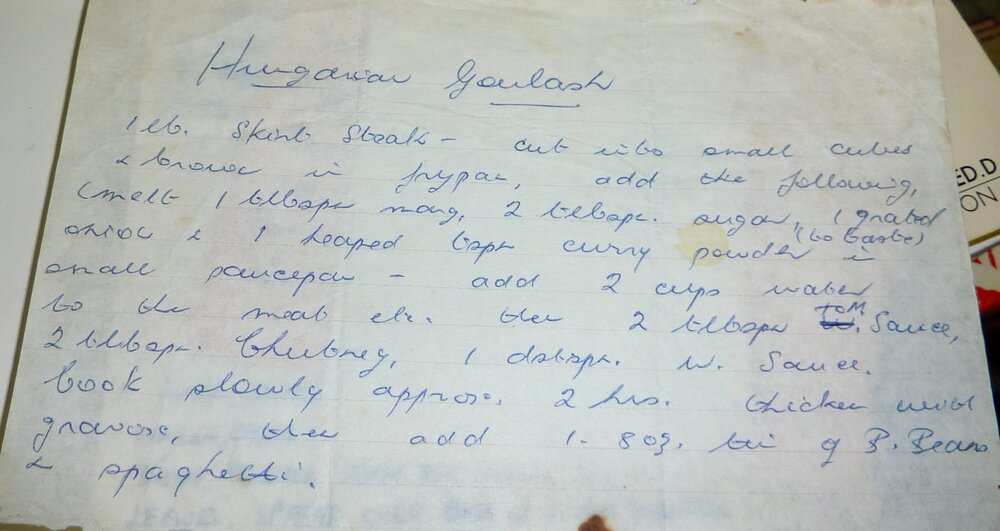 Hungarian Goulash
1 lb. Skirt Steak - cut into small cubes
& brown in frypan, add the following,
(melt 1 tlbspn marg, 2 tlbspn. sugar, 1 grated
onion & 1 heaped tspn curry powder (to taste) in
small saucepan - add 2 cups water
to the meat etc. then 2 tlbspn TOM. Sauce,
2 tlbspn. Chutney, 1 dstspn. W. Sauce.
Cook slowly approx. 2 hrs. thicken with
gravox, then add 1- 8oz. tin of B. Beans
& spaghetti.
ED.D
ION